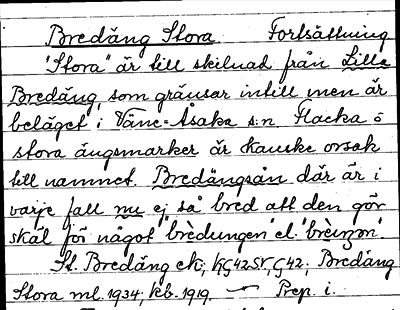 Bredäng Stora Fortsättning
"Stora" är till skilnad från Lilla
Bredäng, som gränsar intill men är
beläget i Väne-Åsaka s:n. Flacka o
stora ängsmarker är kanske orsak
till namnet. Bredängsån där är i
varje fall nu ej så bred att den gör
skäl för något "brèdungen" el.
St. Bredäng ek; Bredäng
Stora ml. 1934, kb. 1919. — Prep. i.